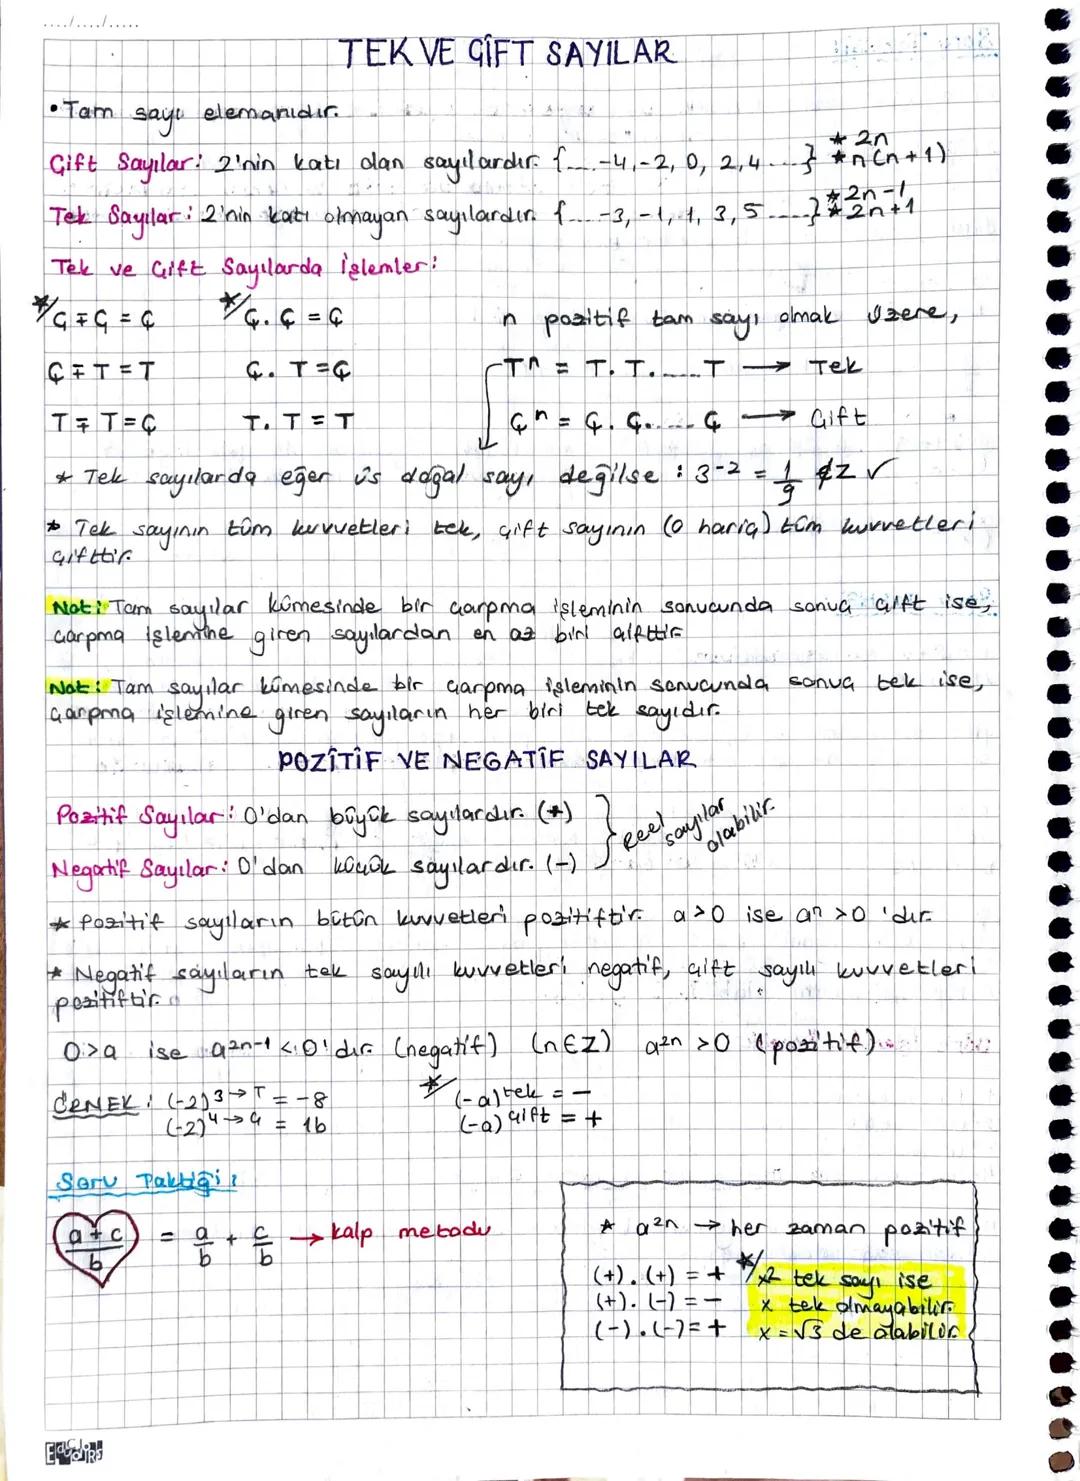 ..../..../.....
TEK VE ÇİFT SAYILAR
• Tam sayı elemanıdır.
Çift Sayılar: 2'nin katı olan sayılardır. {.... -4, -2, 0, 2, 4 ....} * 2n * n(n+1)
Tek Sayılar: 2'nin katı olmayan sayılardır. {.... -3, -1, 1, 3, 5 ....} * 2n-1 * 2n+1
Tek ve Çift Sayılarda İşlemler:
Ç ∓ Ç = Ç   Ç . Ç = Ç   n pozitif tam sayı olmak üzere,
Ç ∓ T = T   Ç . T = Ç   Tⁿ = T . T . .... T → Tek
T ∓ T = Ç   T . T = T   Çⁿ = Ç . Ç . .... Ç → Çift
* Tek sayılarda eğer üs doğal sayı değilse : 3⁻² = 1/9 ∉ Z ✓
* Tek sayının tüm kuvvetleri tek, çift sayının (0 hariç) tüm kuvvetleri
çifttir.
Not: Tam sayılar kümesinde bir çarpma işleminin sonucunda sonuç çift ise,
çarpma işlemine giren sayılardan en az biri çifttir.
Not: Tam sayılar kümesinde bir çarpma işleminin sonucunda sonuç tek ise,
çarpma işlemine giren sayıların her biri tek sayıdır.
POZİTİF VE NEGATİF SAYILAR
Pozitif Sayılar: 0'dan büyük sayılardır. (+)
Negatif Sayılar: 0'dan küçük sayılardır. (-)
Reel sayılar olabilir.
* Pozitif sayıların bütün kuvvetleri pozitiftir. a>0 ise aⁿ >0 'dır.
* Negatif sayıların tek sayılı kuvvetleri negatif, çift sayılı kuvvetleri
pozitiftir.
0>a ise a²ⁿ⁻¹ < 0'dır. (negatif) (n∈Z) a²ⁿ >0 (pozitif)
ÖRNEK: (-2)³→T = -8   * (-a)tek = -
(-2)⁴→Ç = 16   (-a)çift = +
Soru Taktiği:
(a+c)/b = a/b + c/b → kalp metodu
* a²ⁿ → her zaman pozitif
(+).(+) = +   * x² tek sayı ise
(+).(-) = -   x tek olmayabilir.
(-).(-) = +   x = √3 de olabilir.